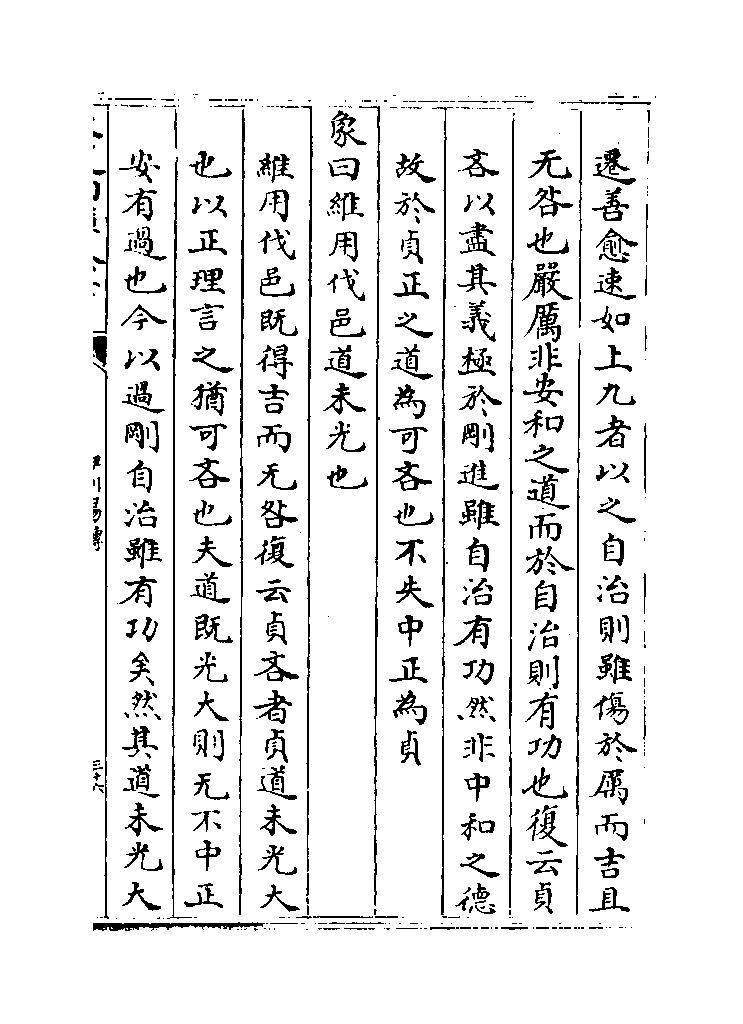 遷善愈速如上九者以之自治則雖傷於厲而吉且
无咎也嚴厲非安和之道而於自治則有功也復云貞
吝以盡其義極於剛進雖自治有功然非中和之德
故於貞正之道為可吝也不失中正為貞
象曰維用伐邑道未光也
維用伐邑既得吉而无咎復云貞吝者貞道未光大
也以正理言之猶可吝也夫道既光大則无不中正
安有過也今以過剛自治雖有功矣然其道未光大
伊川易傳
三十六